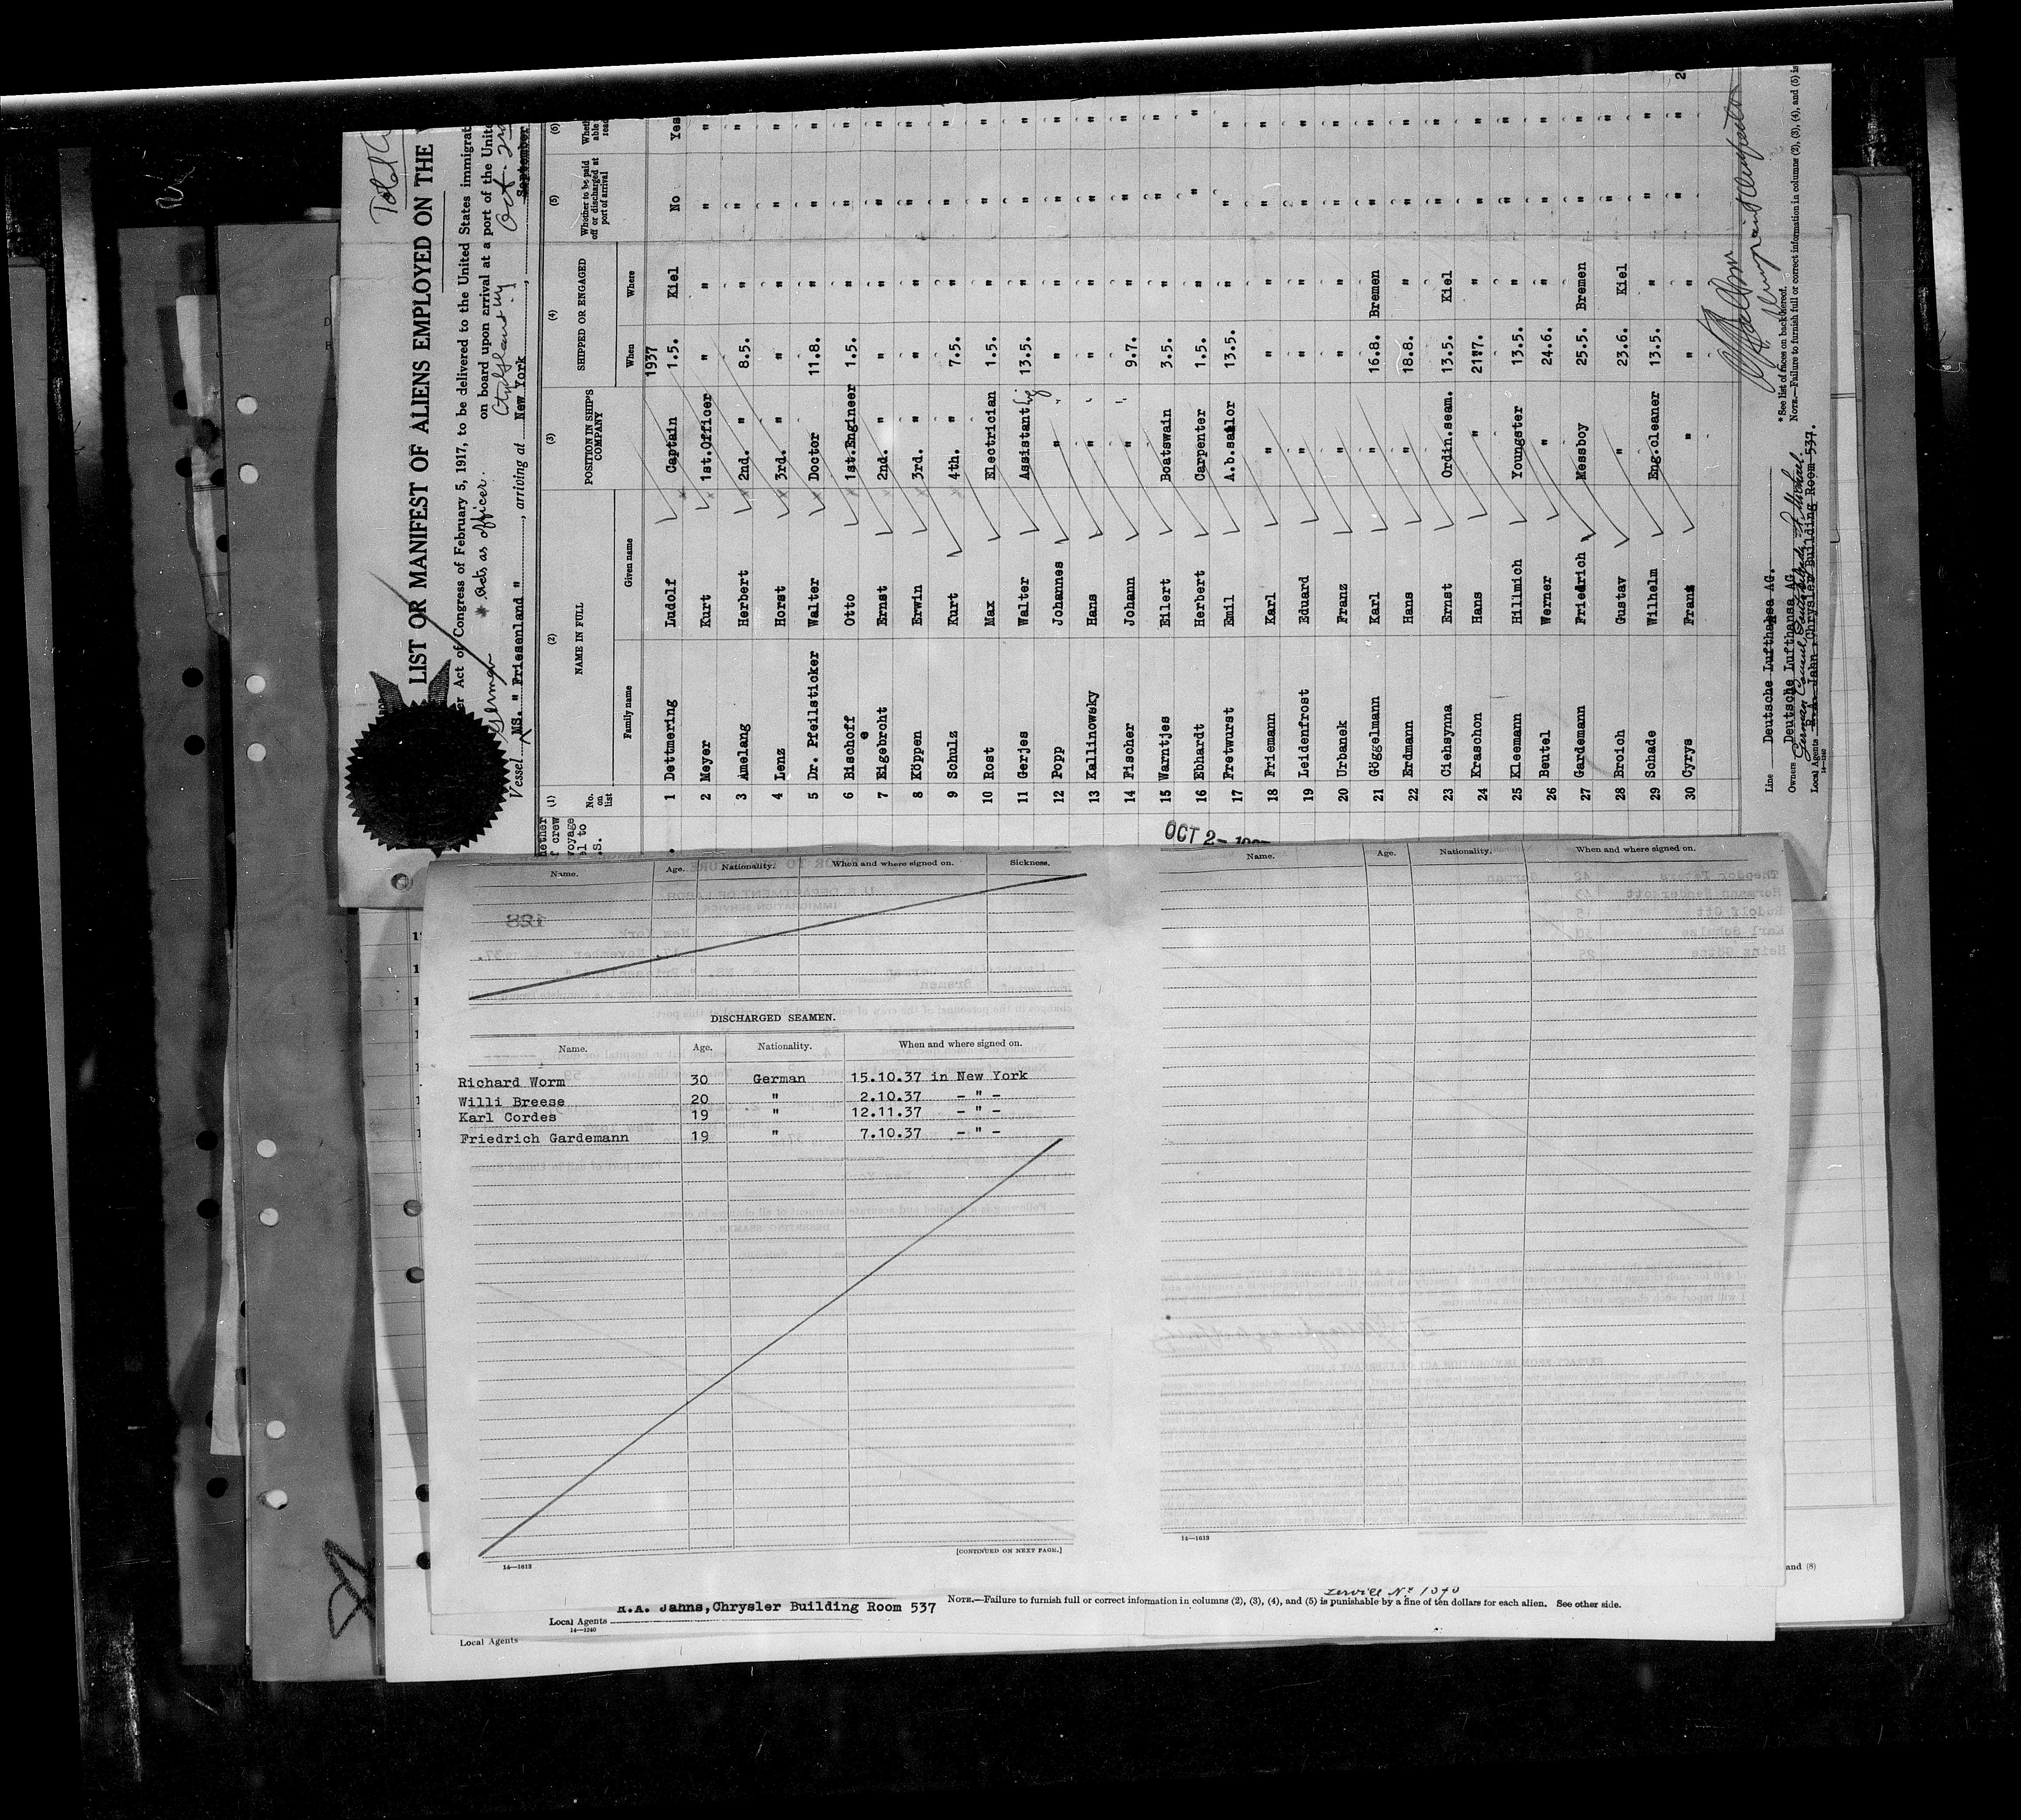 LIST OR MANIFEST OF ALIENS EMPLOYED ON THE
Act of Congress of February 5, 1917, to be delivered to the United States immigrat
* Acts as officer. on board upon arrival at a port of the Unite
German
Vessel MS. " Friesenland ", arriving at New York, September Oct. 2nd
(1) (2) (3) (4) (5) (6)
No. on list NAME IN FULL POSITION IN SHIP'S COMPANY SHIPPED OR ENGAGED Whether to be paid off or discharged at port of arrival
Family name Given name When Where
1937
1 Dettmering Ludolf Captain 1.5. Kiel No Yes
2 Meyer Kurt 1st.Officer " " " "
3 Amelang Herbert 2nd. " 8.5. " " "
4 Lenz Horst 3rd. " " " " "
5 Dr. Pfeilsticker Walter Doctor 11.8. " " "
6 Bischoff Otto 1st.Engineer 1.5. " " "
7 Eigebrecht Ernst 2nd. " " " " "
8 Köppen Erwin 3rd. " " " " "
9 Schulz Kurt 4th. " 7.5. " " "
10 Rost Max Electrician 1.5. " " "
11 Gerjes Walter Assistant 13.5. " " "
12 Popp Johannes " " " " "
13 Kallinowsky Hans " " " " "
14 Fischer Johann " 9.7. " " "
15 Warntjes Eilert Boatswain 3.5. " " "
16 Ebhardt Herbert Carpenter 1.5. " " "
17 Fretwurst Emil A.b.sailor 13.5. " " "
18 Friemann Karl " " " " "
19 Leidenfrost Eduard " " " " "
20 Urbanek Franz " " " " "
21 Göggelmann Karl " 16.8. Bremen " "
22 Erdmann Hans " 18.8. " " "
23 Ciehsynna Ernst Ordin.seam. 13.5. Kiel " "
24 Kraschon Hans " 21"7. " " "
25 Kleemann Hillmich Youngster 13.5. " " "
26 Beutel Werner " 24.6. " " "
27 Gardemann Friedrich Messboy 25.5. Bremen " "
28 Broich Gustav " 23.6. Kiel " "
29 Schade Wilhelm Eng.cleaner 13.5. " " "
30 Cyrys Frans " " " " "
Line Deutsche Lufthansa AG.
Owners Deutsche Lufthansa AG.
Local Agents Chrysler Building Room 537.
14—1240
* See list of races on back hereof.
NOTE.—Failure to furnish full or correct information in columns (2), (3), (4), and (5) is
OCT 2-
Name. Age. Nationality. When and where signed on. Sickness.
DISCHARGED SEAMEN.
Name. Age. Nationality. When and where signed on.
Richard Worm 30 German 15.10.37 in New York
Willi Breese 20 " 2.10.37 - " -
Karl Cordes 19 " 12.11.37 - " -
Friedrich Gardemann 19 " 7.10.37 - " -
[CONTINUED ON NEXT PAGE.]
14—1613
Name. Age. Nationality. When and where signed on.
14—1613
and (8)
R.A. Jahns,Chrysler Building Room 537
Local Agents
14—1240
NOTE.—Failure to furnish full or correct information in columns (2), (3), (4), and (5) is punishable by a fine of ten dollars for each alien. See other side.
Local Agents